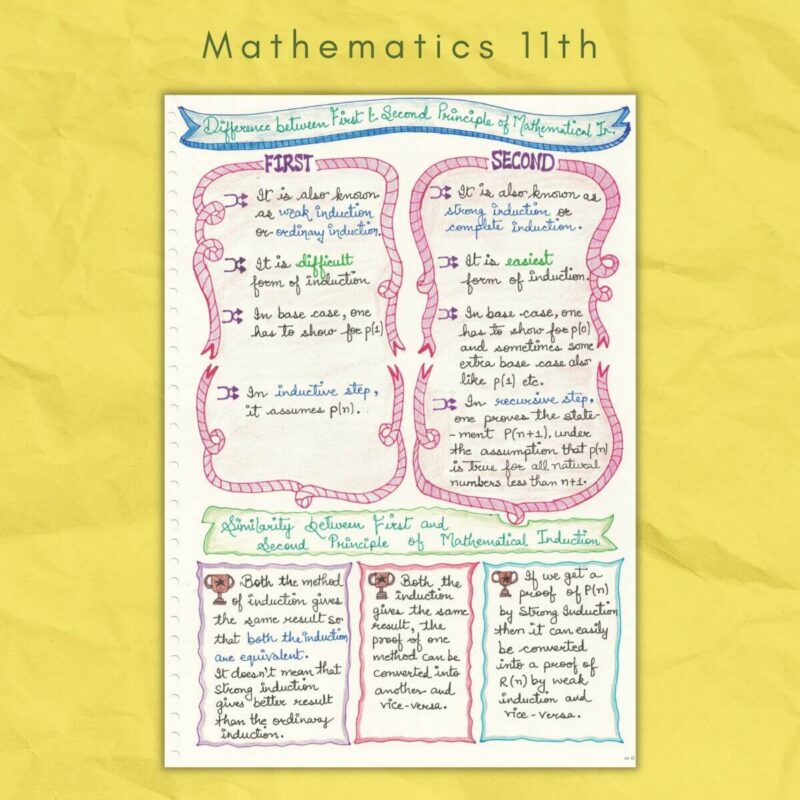 Mathematics 11th
Difference between First & Second Principle of Mathematical In.
FIRST
It is also known
as weak induction
or ordinary induction.
It is difficult
form of induction
In base case, one
has to show for p(1)
In inductive step,
it assumes p(n).
SECOND
It is also known as
strong induction or
complete induction.
It is easiest
form of induction.
In base case, one
has to show for p(0)
and sometimes some
extra base case also
like p(1) etc.
In recursive step,
one proves the state-
-ment P(n+1), under
the assumption that p(n)
is true for all natural
numbers less than n+1.
Similarity between First and
Second Principle of Mathematical Induction
Both the method
of induction gives
the same result so
that both the induction
are equivalent.
It doesn't mean that
strong induction
gives better result
than the ordinary
induction.
Both the
induction
gives the same
result, the
proof of one
method can be
converted into
another and
vice-versa.
If we get a
proof of P(n)
by Strong Induction
then it can easily
be converted
into a proof of
R(n) by weak
induction and
vice-versa.